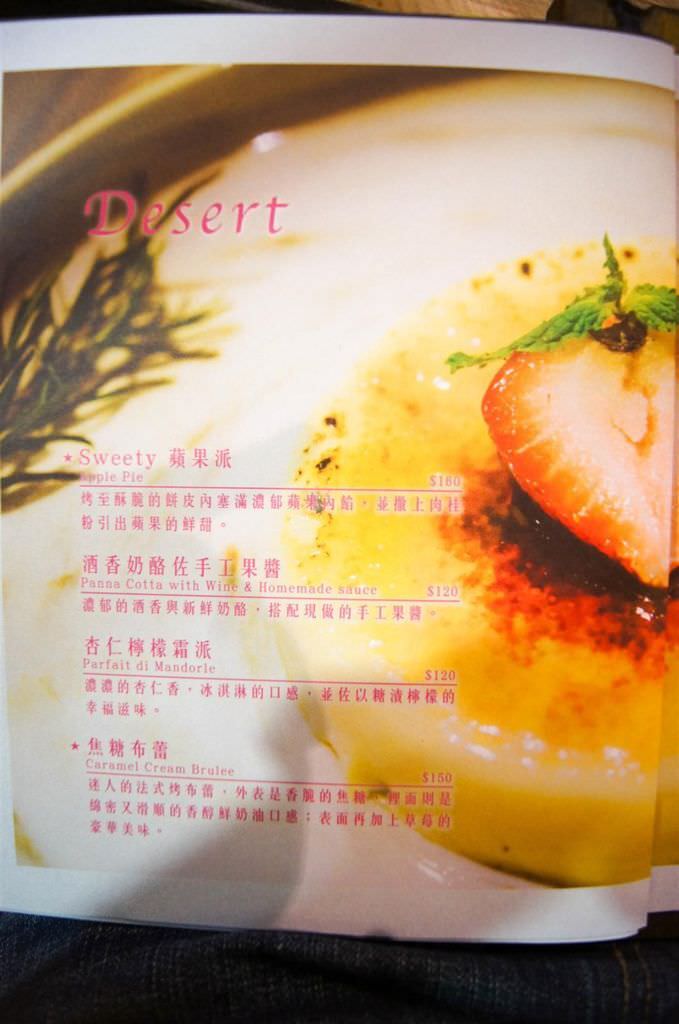 Desert
★Sweety 蘋果派
Apple Pie $180
烤至酥脆的餅皮內塞滿濃郁蘋果內餡，並撒上肉桂
粉引出蘋果的鮮甜。
酒香奶酪佐手工果醬
Panna Cotta with Wine & Homemade sauce $120
濃郁的酒香與新鮮奶酪，搭配現做的手工果醬。
杏仁檸檬霜派
Parfait di Mandorle $120
濃濃的杏仁香，冰淇淋的口感，並佐以糖漬檸檬的
幸福滋味。
★焦糖布蕾
Caramel Cream Brulee $150
迷人的法式烤布蕾，外表是香脆的焦糖，裡面則是
綿密又滑順的香醇鮮奶油口感；表面再加上草莓的
豪華美味。